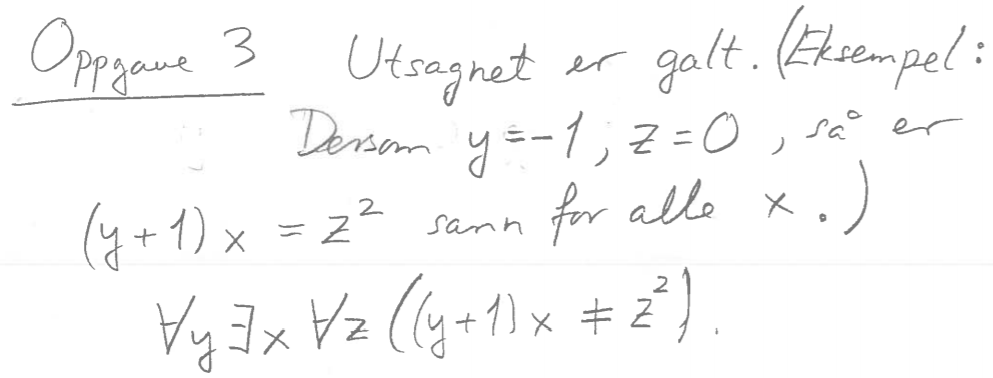 Oppgave 3 Utsagnet er galt. (Eksempel:
Dersom y=-1, z=0, så er
(y+1)x = z² sann for alle x.)
∀y∃x∀z((y+1)x ≠ z²).